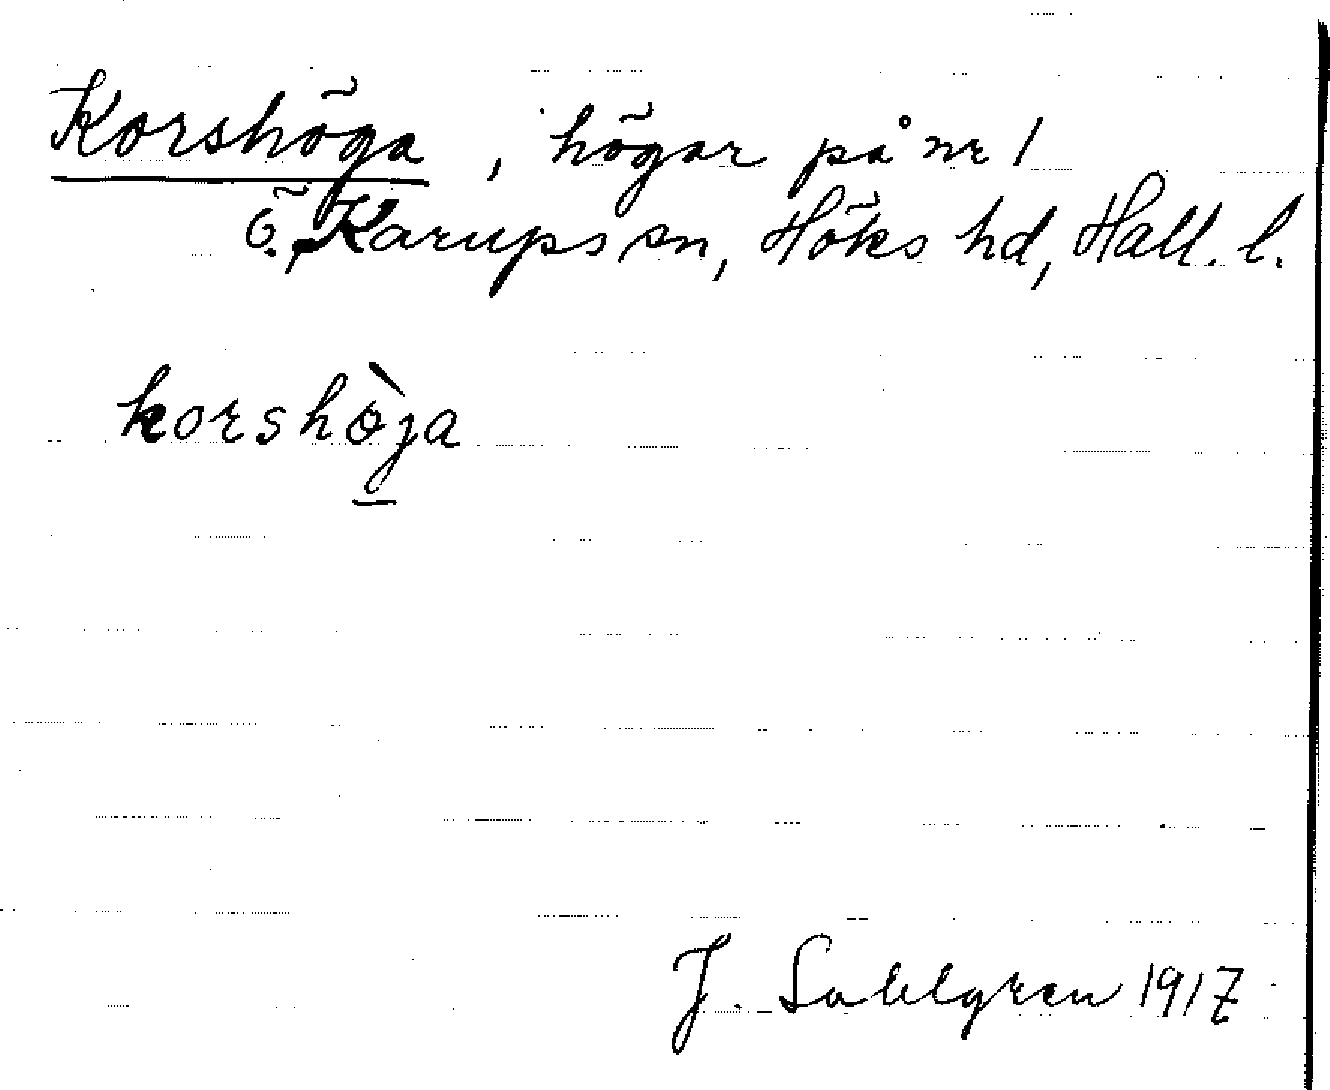 Korshöga, högar på nr 1
Ö. Karups sn, Höks hd, Hall. l.
korshòja
J. Sahlgren 1917